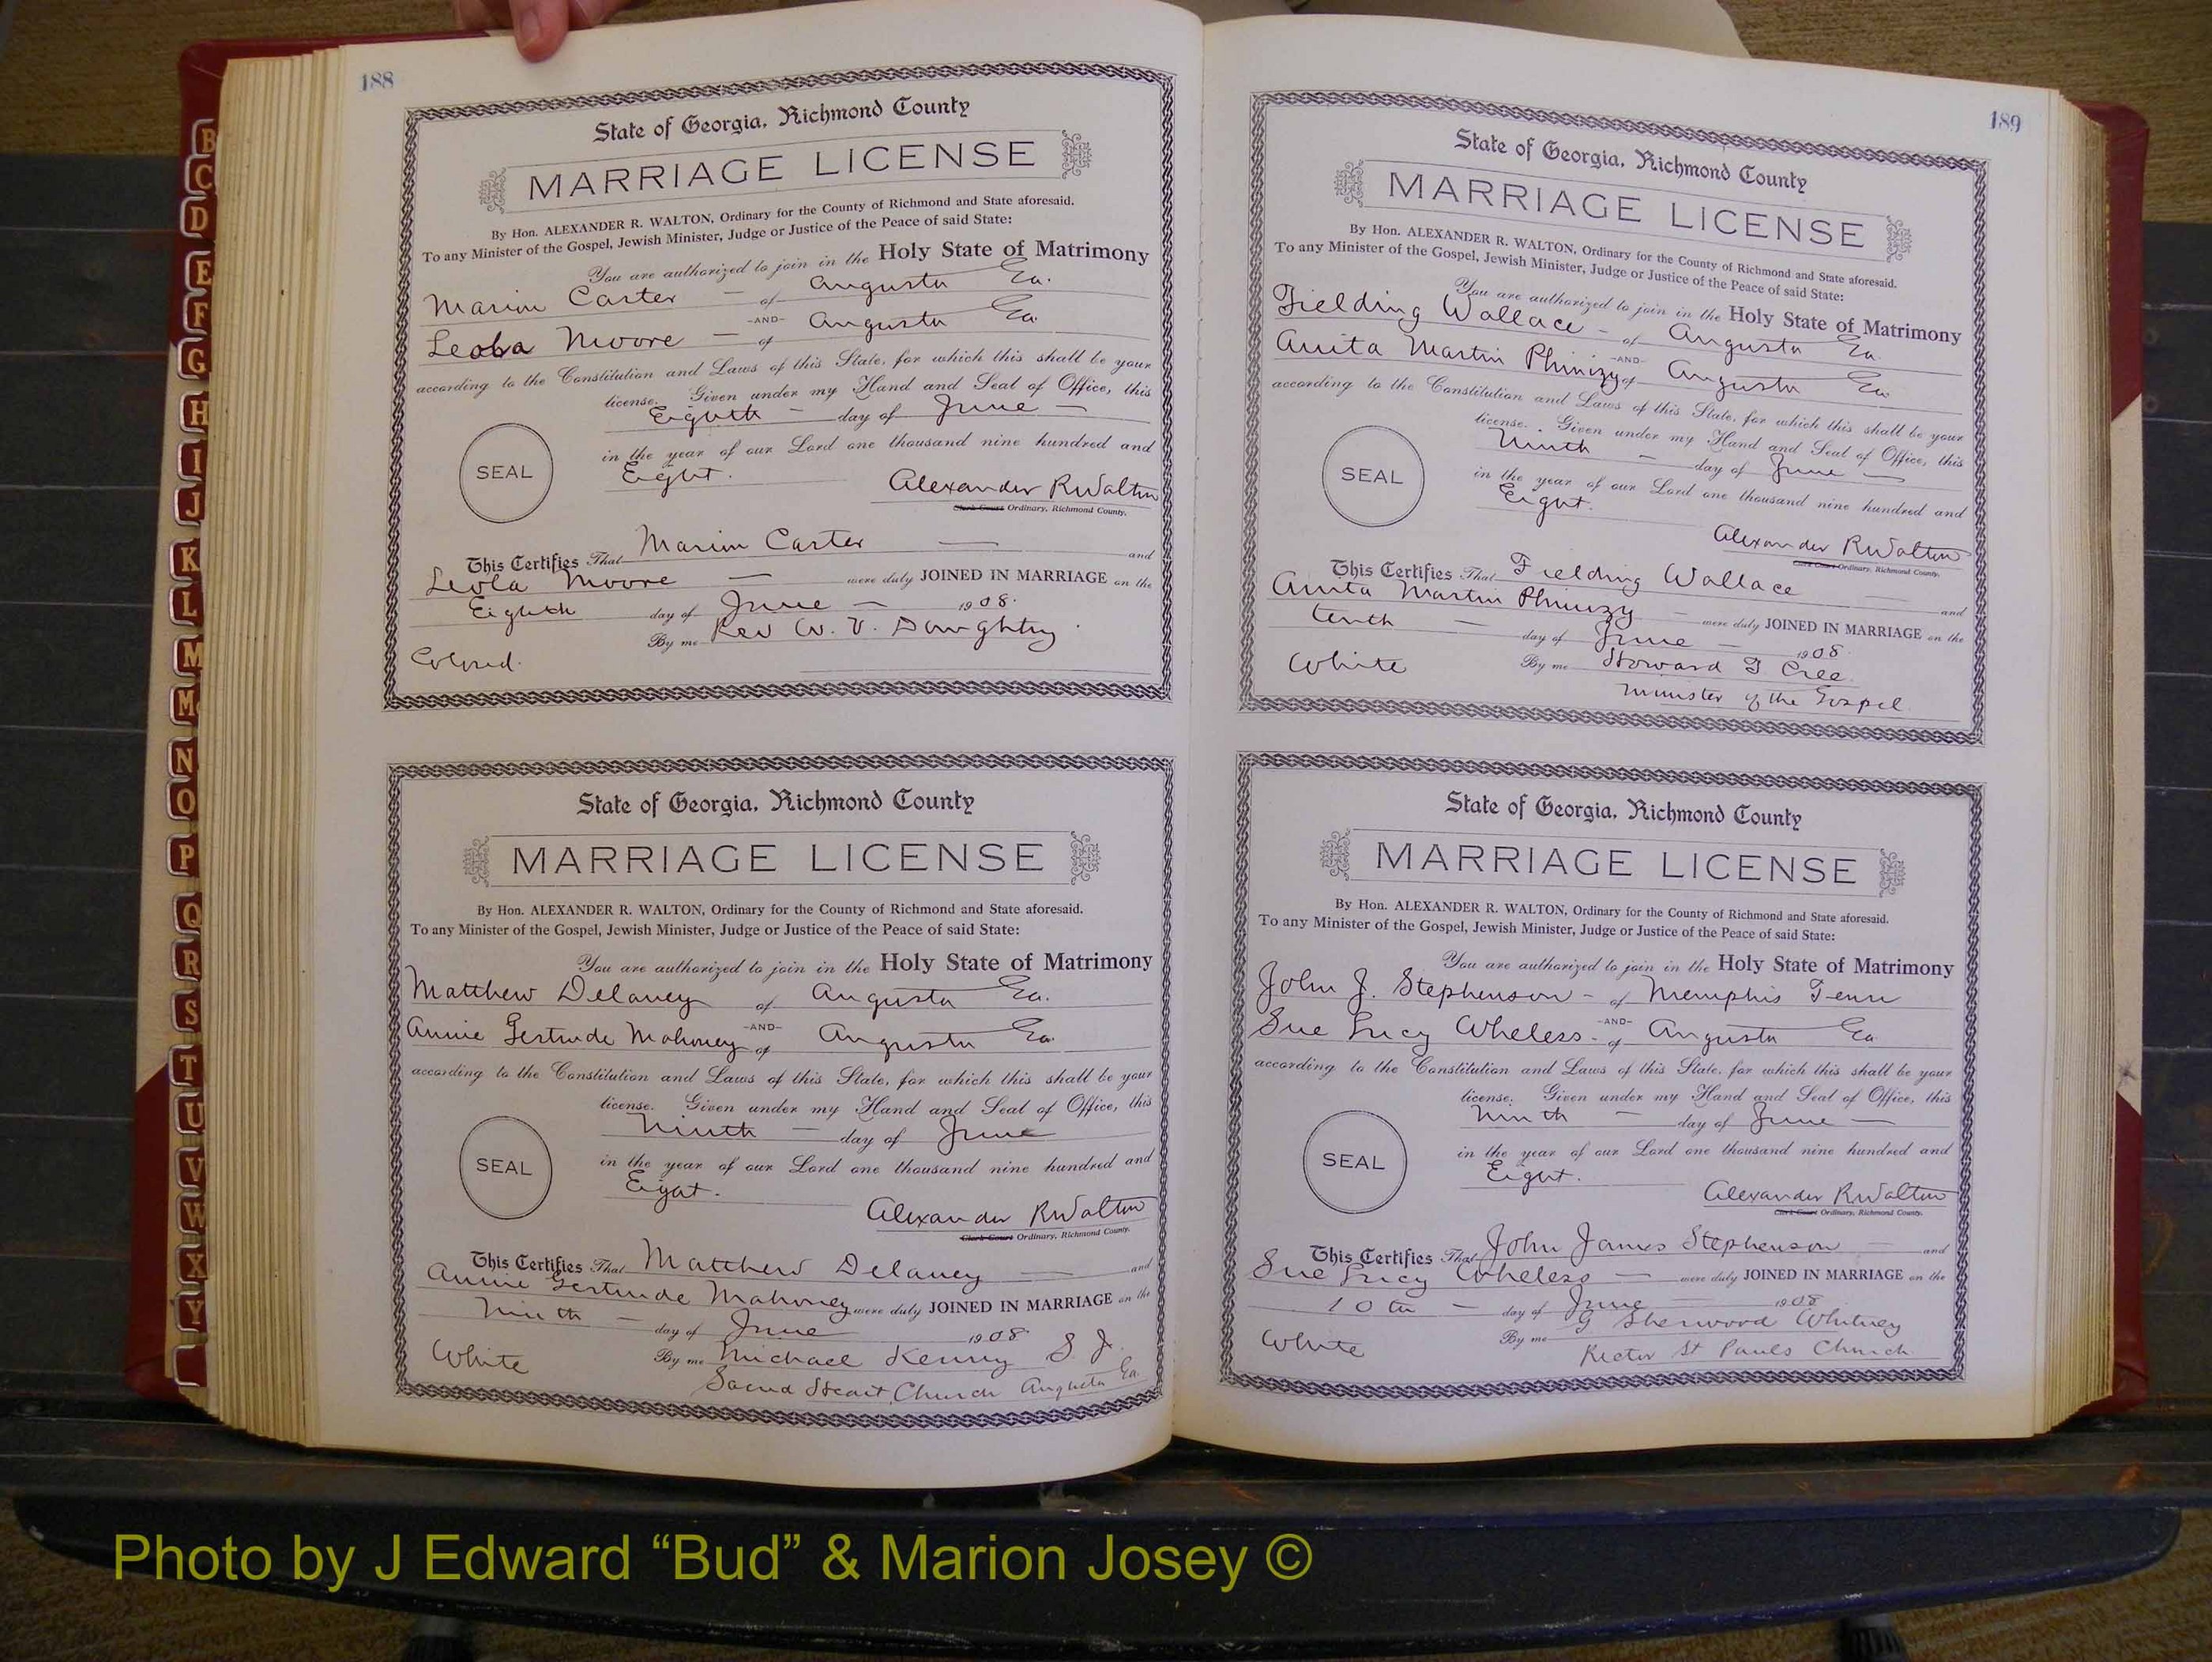 188
State of Georgia, Richmond County
MARRIAGE LICENSE
By Hon. ALEXANDER R. WALTON, Ordinary for the County of Richmond and State aforesaid.
To any Minister of the Gospel, Jewish Minister, Judge or Justice of the Peace of said State:
You are authorized to join in the Holy State of Matrimony
Marion Carter - of Augusta Ga.
-AND-
Leola Moore - of Augusta Ga.
according to the Constitution and Laws of this State, for which this shall be your
license. Given under my Hand and Seal of Office, this
Eighth - day of June -
in the year of our Lord one thousand nine hundred and
SEAL
Eight.
Alexander R Walton
Clerk Court Ordinary, Richmond County.
This Certifies That Marion Carter - and
Leola Moore - were duly JOINED IN MARRIAGE on the
Eighth day of June - 1908.
By me Rev W. V. Doughtry
Colored.
State of Georgia, Richmond County
MARRIAGE LICENSE
By Hon. ALEXANDER R. WALTON, Ordinary for the County of Richmond and State aforesaid.
To any Minister of the Gospel, Jewish Minister, Judge or Justice of the Peace of said State:
You are authorized to join in the Holy State of Matrimony
Matthew Delaney of Augusta Ga.
-AND-
Annie Gertrude Mahoney of Augusta Ga.
according to the Constitution and Laws of this State, for which this shall be your
license. Given under my Hand and Seal of Office, this
Ninth - day of June
in the year of our Lord one thousand nine hundred and
SEAL
Eight.
Alexander R Walton
Clerk Court Ordinary, Richmond County.
This Certifies That Matthew Delaney - and
Annie Gertrude Mahoney were duly JOINED IN MARRIAGE on the
Ninth - day of June 1908.
White By me Michael Kenny S. J.
Sacred Heart Church Augusta Ga.
189
State of Georgia, Richmond County
MARRIAGE LICENSE
By Hon. ALEXANDER R. WALTON, Ordinary for the County of Richmond and State aforesaid.
To any Minister of the Gospel, Jewish Minister, Judge or Justice of the Peace of said State:
You are authorized to join in the Holy State of Matrimony
Fielding Wallace - of Augusta Ga.
-AND-
Anita Martin Phinizy of Augusta Ga.
according to the Constitution and Laws of this State, for which this shall be your
license. Given under my Hand and Seal of Office, this
Ninth - day of June -
in the year of our Lord one thousand nine hundred and
SEAL
Eight.
Alexander R Walton
Clerk Court Ordinary, Richmond County.
This Certifies That Fielding Wallace and
Anita Martin Phinizy - were duly JOINED IN MARRIAGE on the
tenth - day of June - 1908.
White By me Howard T Cree.
Minister of the Gospel.
State of Georgia, Richmond County
MARRIAGE LICENSE
By Hon. ALEXANDER R. WALTON, Ordinary for the County of Richmond and State aforesaid.
To any Minister of the Gospel, Jewish Minister, Judge or Justice of the Peace of said State:
You are authorized to join in the Holy State of Matrimony
John J. Stephenson - of Memphis Tenn
-AND-
Sue Lucy Wheless - of Augusta Ga
according to the Constitution and Laws of this State, for which this shall be your
license. Given under my Hand and Seal of Office, this
Ninth - day of June -
in the year of our Lord one thousand nine hundred and
SEAL
Eight.
Alexander R Walton
Clerk Court Ordinary, Richmond County.
This Certifies That John James Stephenson - and
Sue Lucy Wheless - were duly JOINED IN MARRIAGE on the
10th - day of June - 1908
White By me G Sherwood Whitney
Rector St Pauls Church.
B
C
D
E
F
G
H
I
J
K
L
M
Mc
N
O
P
Q
R
S
T
U
V
W
X
Y
Photo by J Edward “Bud” & Marion Josey ©